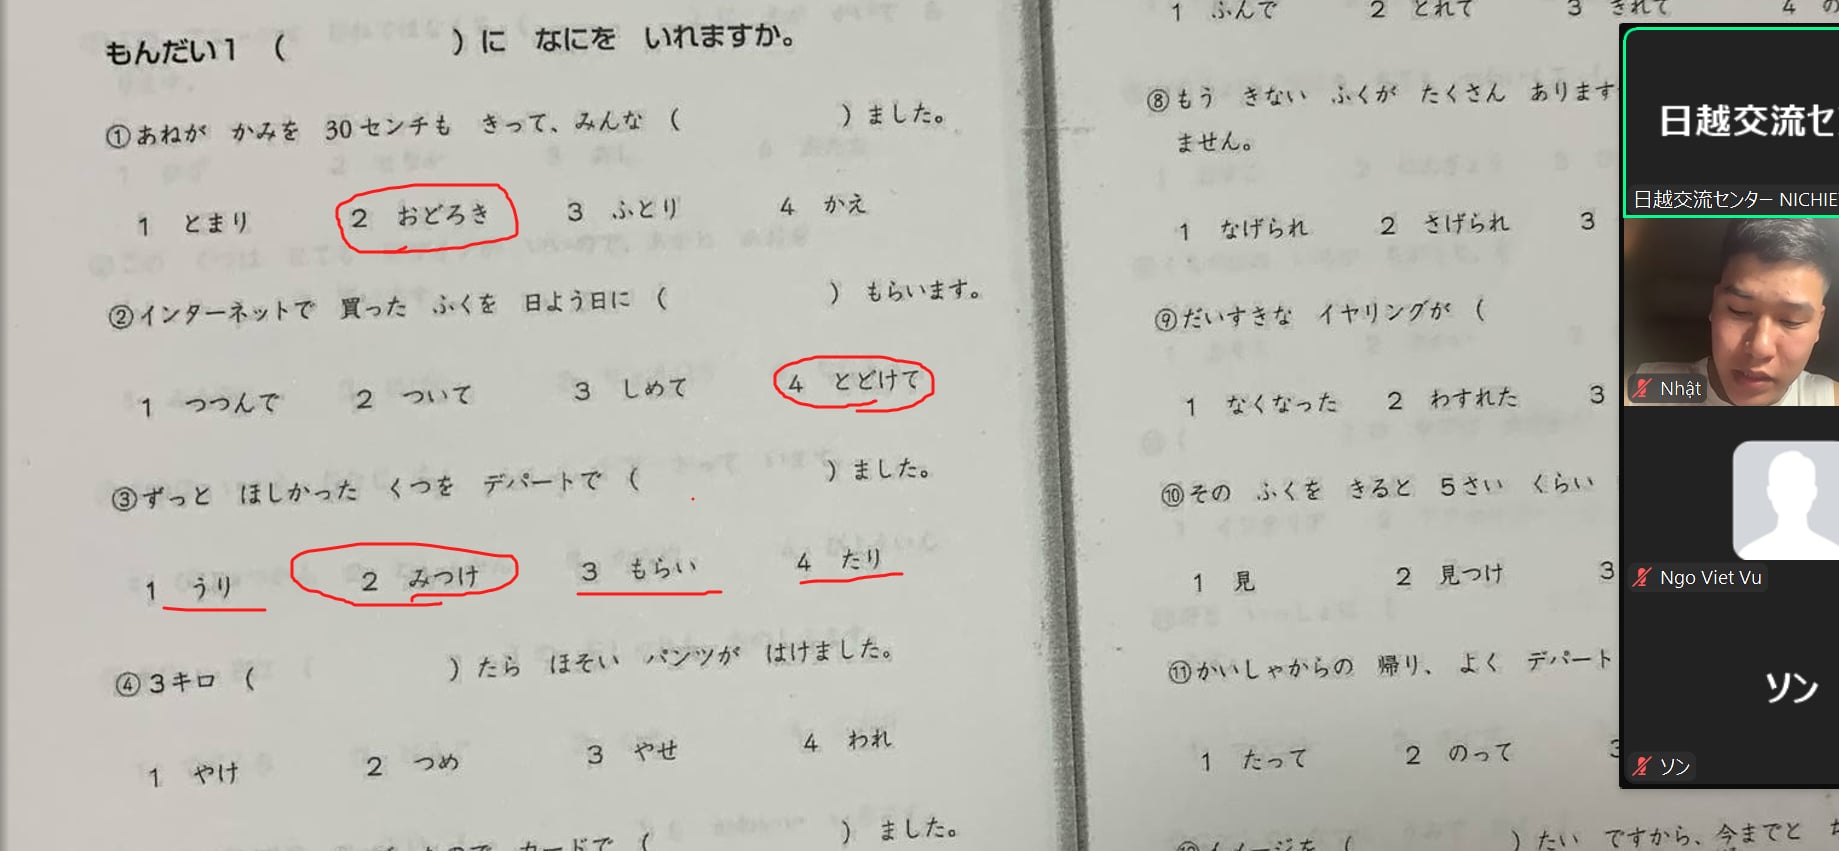 もんだい1 (　　　)に なにを いれますか。
①あねが かみを 30センチも きって、みんな (　　　)ました。
1 とまり 2 おどろき 3 ふとり 4 かえ
②インターネットで 買った ふくを 日よう日に (　　　) もらいます。
1 つつんで 2 ついて 3 しめて 4 とどけて
③ずっと ほしかった くつを デパートで (　　　)ました。
1 うり 2 みつけ 3 もらい 4 たり
④3キロ (　　　)たら ほそい パンツが はけました。
1 やけ 2 つめ 3 やせ 4 われ
カードで (　　　)ました。
1 ふんで 2 とれて 3 きれて 4
⑧もう きない ふくが たくさん あります
ません。
1 なげられ 2 さげられ 3
⑨だいすきな イヤリングが (
1 なくなった 2 わすれた 3
⑩その ふくを きると 5さい くらい
1 見 2 見つけ 3
⑪かいしゃからの 帰り、よく デパート
1 たって 2 のって 3
イメージを (　　　)たい ですから、今までと
日越交流セ
日越交流センター NICHIE
Nhật
Ngo Viet Vu
ソン
ソン